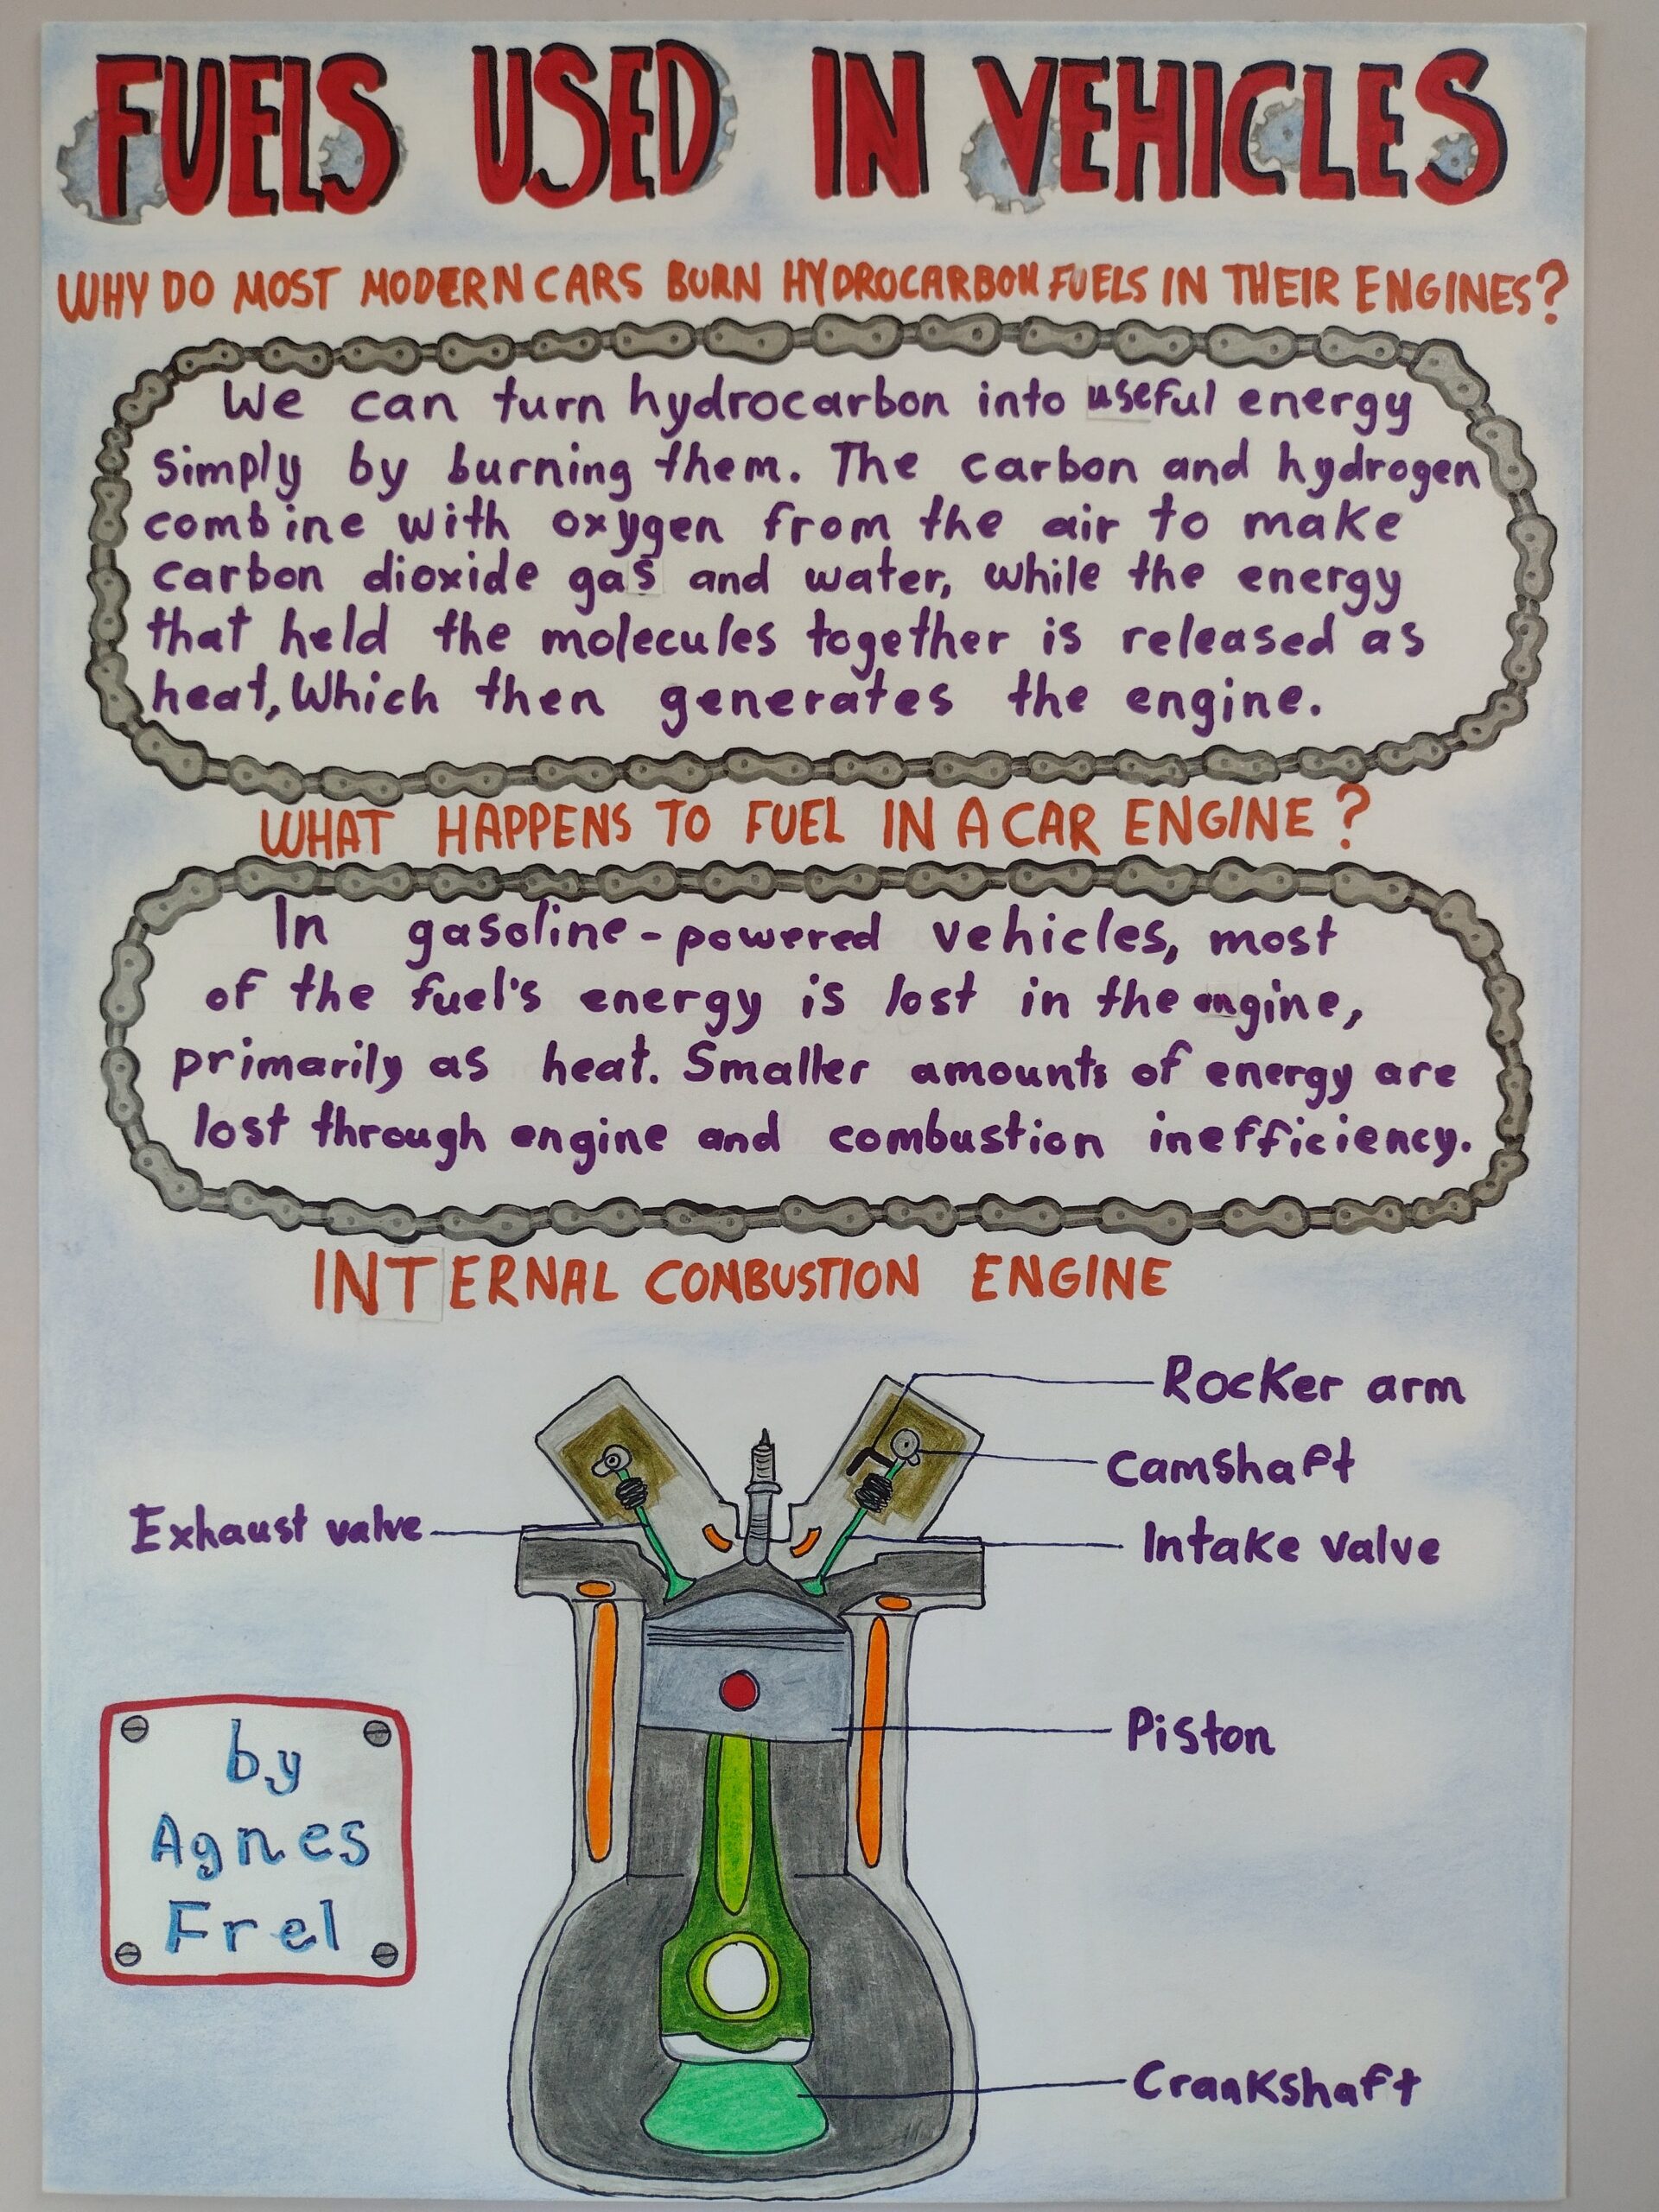 FUELS USED IN VEHICLES
WHY DO MOST MODERN CARS BURN HYDROCARBON FUELS IN THEIR ENGINES?
We can turn hydrocarbon into useful energy
simply by burning them. The carbon and hydrogen
combine with oxygen from the air to make
carbon dioxide gas and water, while the energy
that held the molecules together is released as
heat, Which then generates the engine.
WHAT HAPPENS TO FUEL IN A CAR ENGINE?
In gasoline-powered vehicles, most
of the fuel's energy is lost in the engine,
primarily as heat. Smaller amounts of energy are
lost through engine and combustion inefficiency.
INTERNAL COMBUSTION ENGINE
Rocker arm
Camshaft
Exhaust valve
Intake valve
Piston
by
Agnes
Frel
Crankshaft